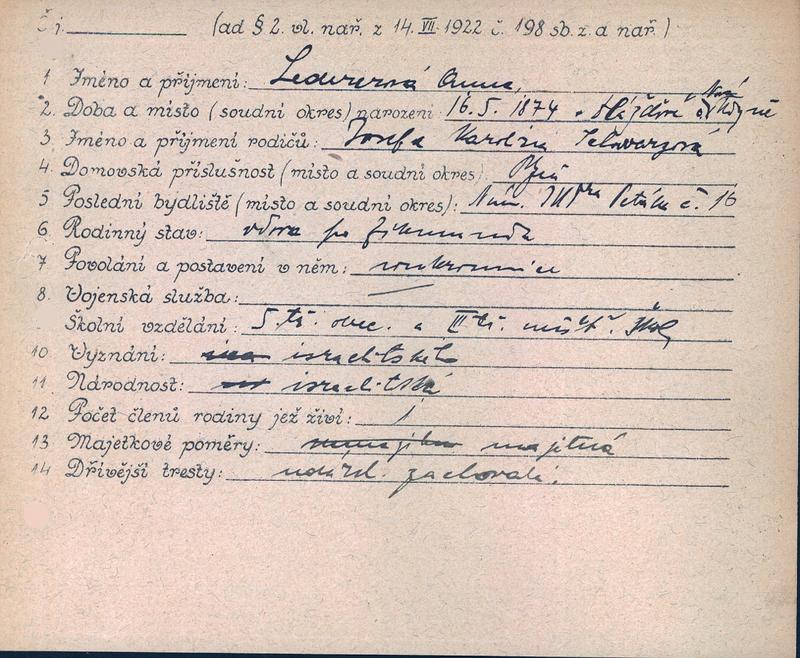 Č.j. (ad § 2. vl. nař. z 14. VII. 1922 č. 198 sb. z. a nař.)
1 Jméno a příjmení: Ledererová Anna,
2. Doba a místo (soudní okres) narození: 16.5. 1874
3. Jméno a příjmení rodičů: Josefa Schwarzová
4. Domovská příslušnost (místo a soudní okres)
5 Poslední bydliště (místo a soudní okres): Nám. č. 16
6 Rodinný stav: vdova po Zikmundu
7 Povolání a postavení v něm: soukromnice
8. Vojenská služba: —
Školní vzdělání: 5.tř. obec. a III tř. měšť. školy
10 Vyznání: israelitského
11 Národnost: israelitská
12 Počet členů rodiny jež živí: 1
13 Majetkové poměry: majetná
14 Dřívější tresty: zachovalá.